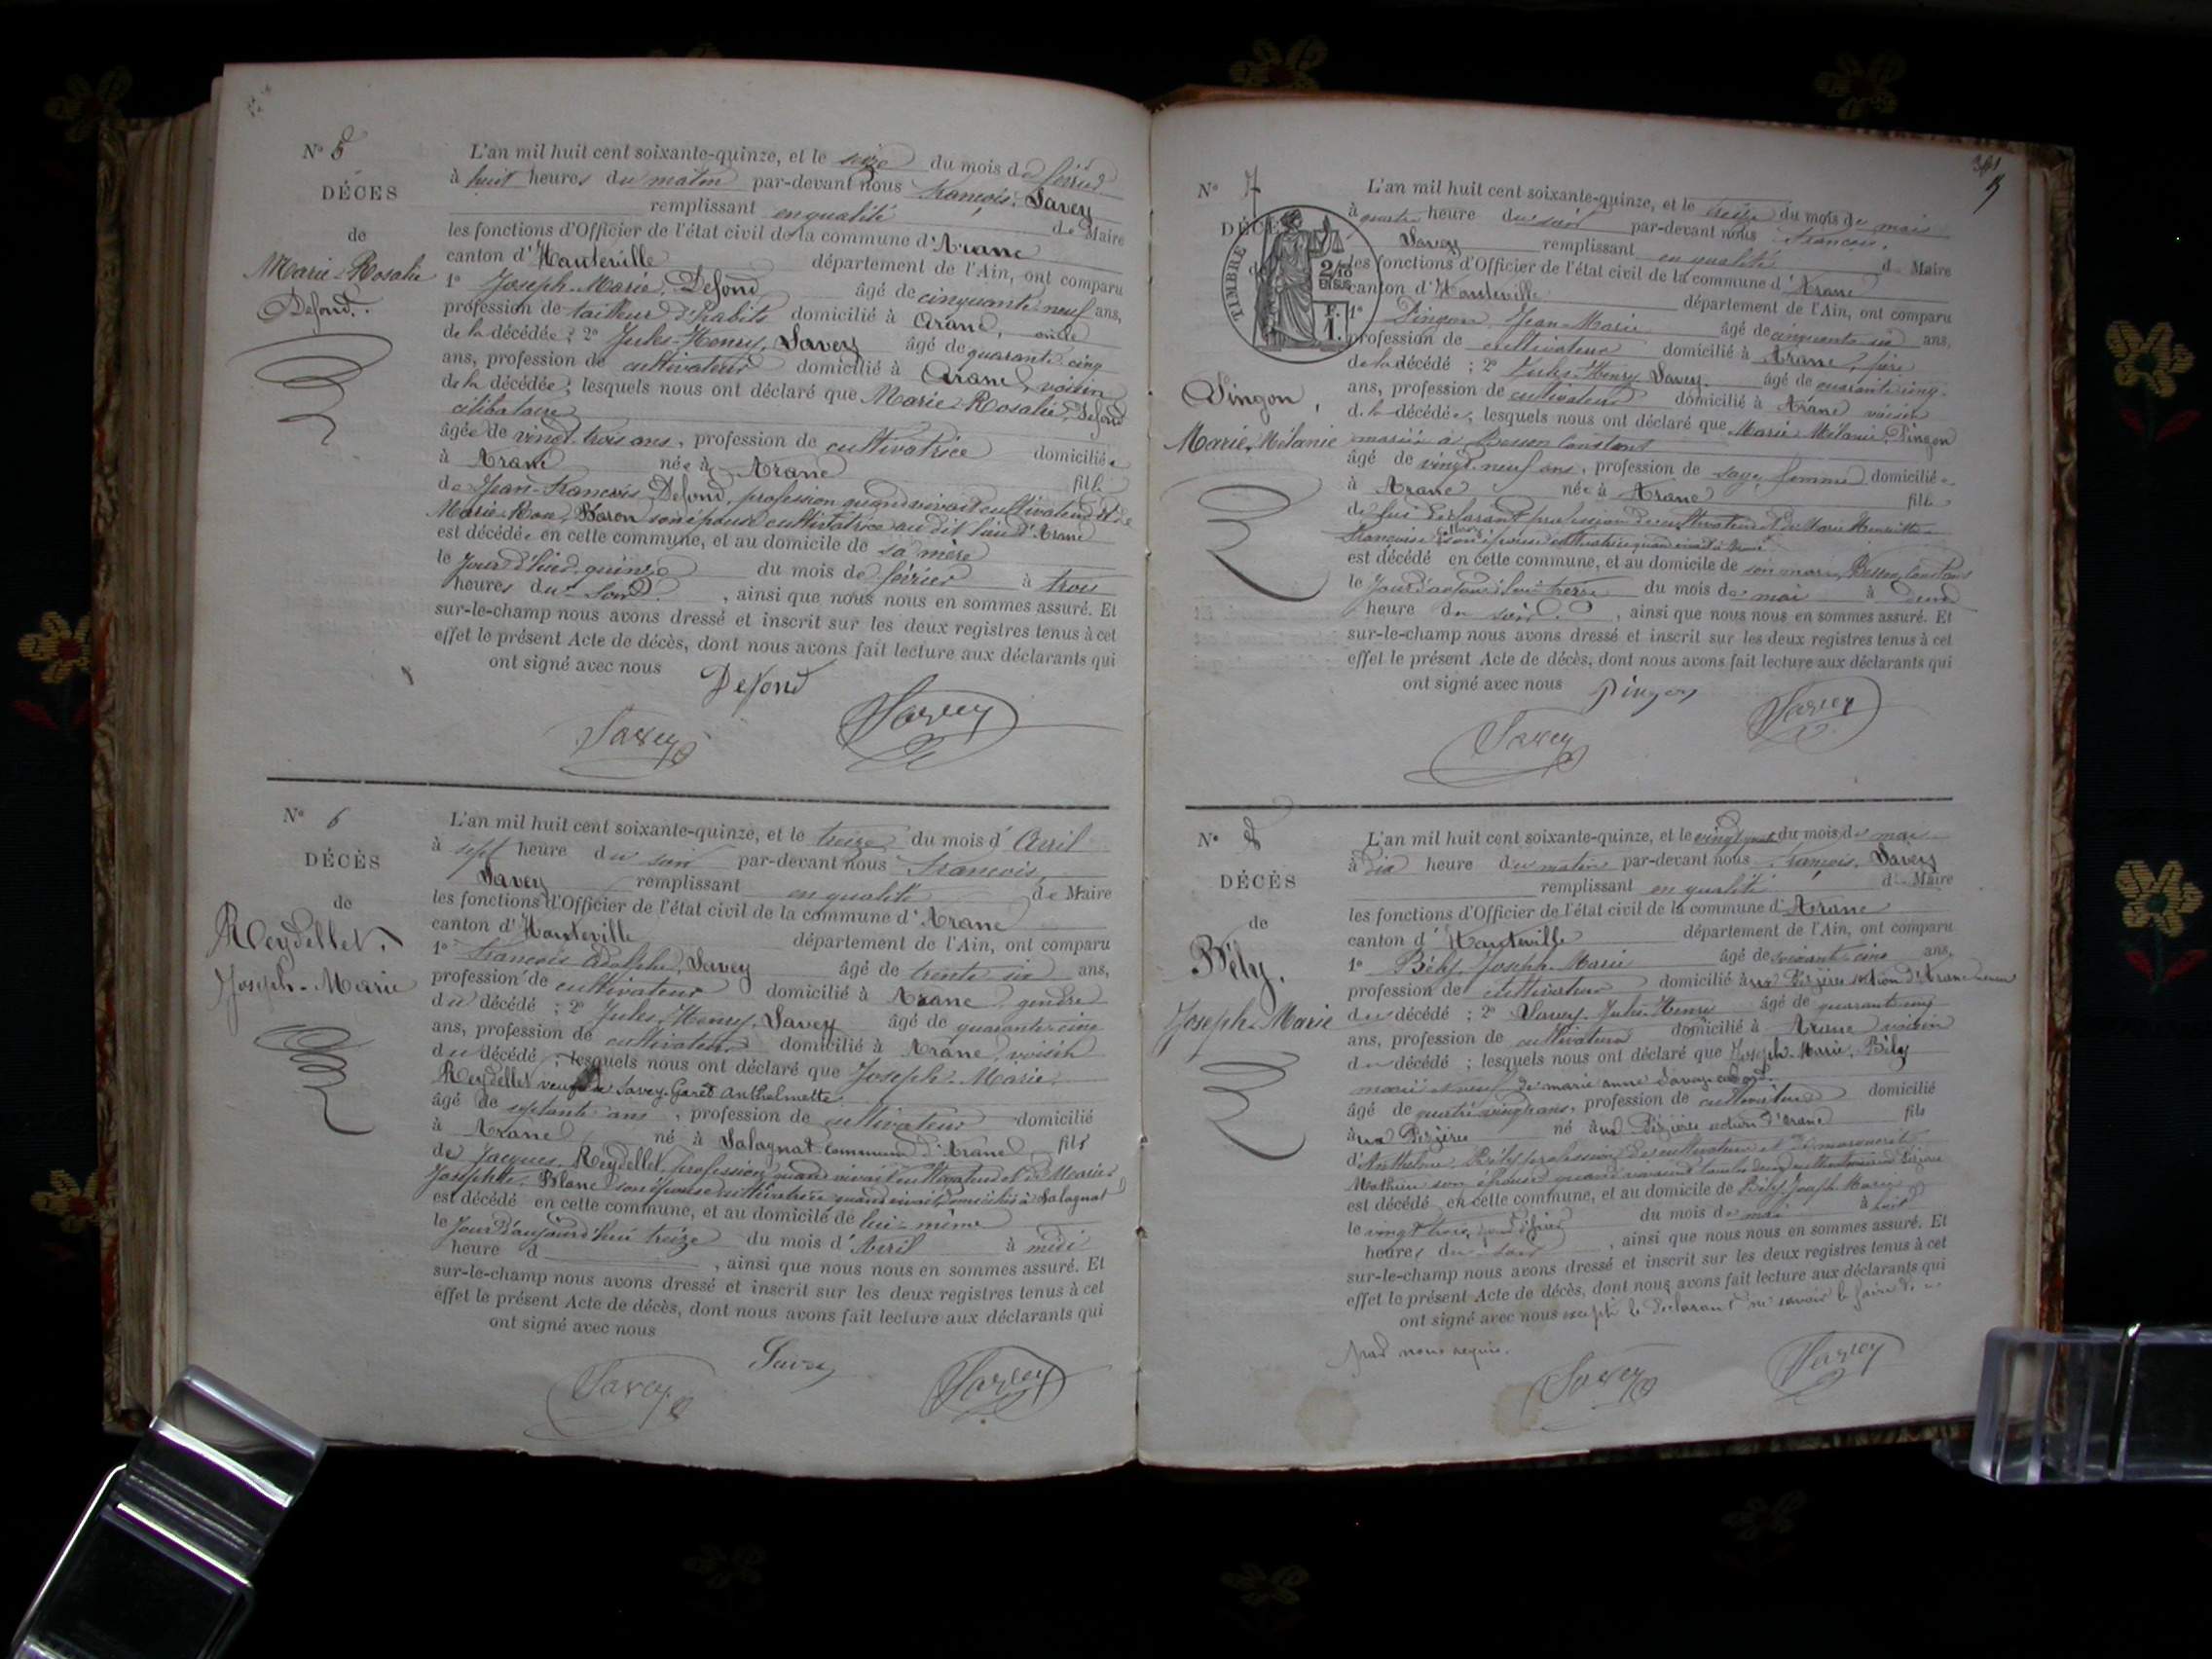 N° 5
DÉCES
de
Marie-Rosalie
Defond.
L'an mil huit cent soixante-quinze, et le seize du mois de février
à huit heures du matin par-devant nous François, Savey
remplissant en qualité de Maire
les fonctions d'Officier de l'état civil de la commune d'Arane
canton d'Hauteville département de l'Ain, ont comparu
1° Joseph-Marie, Defond, âgé de cinquante-neuf ans,
profession de tailleur d'habits domicilié à Arane, oncle
de la décédée; 2° Jules-Henry, Savey âgé de quarante-cinq
ans, profession de cultivateur domicilié à Arane, voisin
de la décédée; lesquels nous ont déclaré que Marie-Rosalie, Defond
célibataire
âgée de vingt-trois ans, profession de cultivatrice domiciliée
à Arane née à Arane fille
de Jean-François, Defond, profession quand vivait cultivateur et de
Marie-Rose, Baron son épouse cultivatrice au dit lieu d'Arane
est décédée en cette commune, et au domicile de sa mère
le jour d'hier quinze du mois de février à trois
heures du soir, ainsi que nous nous en sommes assuré. Et
sur-le-champ nous avons dressé et inscrit sur les deux registres tenus à cet
effet le présent Acte de décès, dont nous avons fait lecture aux déclarants qui
ont signé avec nous
Defond
Savey Savey
N° 6
DÉCÈS
de
Reydellet,
Joseph-Marie
L'an mil huit cent soixante-quinze, et le treize du mois d'Avril
à sept heure du soir par-devant nous François,
Savey remplissant en qualité de Maire
les fonctions d'Officier de l'état civil de la commune d'Arane
canton d'Hauteville département de l'Ain, ont comparu
1° François Adolphe, Savey âgé de trente six ans,
profession de cultivateur domicilié à Arane, gendre
du décédé; 2° Jules-Henry, Savey âgé de quarante-cinq
ans, profession de cultivateur domicilié à Arane, voisin
du décédé; lesquels nous ont déclaré que Joseph-Marie,
Reydellet veuf de Savey-Garet Anthelmette
âgé de septante ans, profession de cultivateur domicilié
à Arane né à Salagnat commune d'Arane fils
de Jacques, Reydellet, profession quand vivait cultivateur et de Marie-
Josephte, Blanc son épouse cultivatrice quand vivait domiciliés à Salagnat
est décédé en cette commune, et au domicile de lui-même
le jour d'aujourd'hui treize du mois d'Avril à midi
heure d , ainsi que nous nous en sommes assuré. Et
sur-le-champ nous avons dressé et inscrit sur les deux registres tenus à cet
effet le présent Acte de décès, dont nous avons fait lecture aux déclarants qui
ont signé avec nous
Savey
Savey Savey
N° 7
DÉCÈS
TIMBRE
2/10
EN SUS
F.
1.
Pingon,
Marie, Mélanie
L'an mil huit cent soixante-quinze, et le treize du mois de mai
à quatre heure du soir par-devant nous François,
Savey remplissant en qualité d Maire
les fonctions d'Officier de l'état civil de la commune d'Arane
canton d'Hauteville département de l'Ain, ont comparu
1° Pingon, Jean-Marie âgé de cinquante six ans,
profession de cultivateur domicilié à Arane, père
de la décédé; 2° Jules-Henry Savey. âgé de quarante cinq
ans, profession de cultivateur domicilié à Arane voisin
de la décédée, lesquels nous ont déclaré que Marie Mélanie, Pingon
mariée à Besson Constant
âgé de vingt-neuf ans, profession de sage femme domicilié
à Arane née à Arane fille
de lui déclarant profession de cultivateur et de Marie Henriette
Françoise son épouse cultivatrice quand vivait à Arane
est décédé en cette commune, et au domicile de son mari, Besson Constant
le jour d'aujourd'hui treize du mois de mai à deux
heure du soir, ainsi que nous nous en sommes assuré. Et
sur-le-champ nous avons dressé et inscrit sur les deux registres tenus à cet
effet le présent Acte de décès, dont nous avons fait lecture aux déclarants qui
ont signé avec nous Pingon
Savey Savey
N° 8
DÉCÈS
de
Bély,
Joseph-Marie
L'an mil huit cent soixante-quinze, et le vingt quatre du mois de mai
à dix heure du matin par-devant nous François, Savey
remplissant en qualité d Maire
les fonctions d'Officier de l'état civil de la commune d'Arane
canton d'Hauteville département de l'Ain, ont comparu
1° Bély, Joseph-Marie âgé de soixante-cinq ans,
profession de cultivateur domicilié aux Pézières section d'Arane neveu
du décédé; 2° Savey, Jules-Henri âgé de quarante cinq
ans, profession de cultivateur domicilié à Arane voisin
du décédé; lesquels nous ont déclaré que Joseph-Marie, Bély
marié veuf de marie anne Savoy
âgé de quatre vingt ans, profession de cultivateur domicilié
aux Pézières né aux Pézières section d'Arane fils
d'Anthelme, Bély profession de cultivateur et de
Mathieu son épouse quand vivaient tous les deux
est décédé en cette commune, et au domicile de Bély Joseph Marie
le vingt trois jour d'hier du mois de mai à huit
heures du soir, ainsi que nous nous en sommes assuré. Et
sur-le-champ nous avons dressé et inscrit sur les deux registres tenus à cet
effet le présent Acte de décès, dont nous avons fait lecture aux déclarants qui
ont signé avec nous excepté le declarant ne savoir le faire de
par nous requis.
Savey Savey